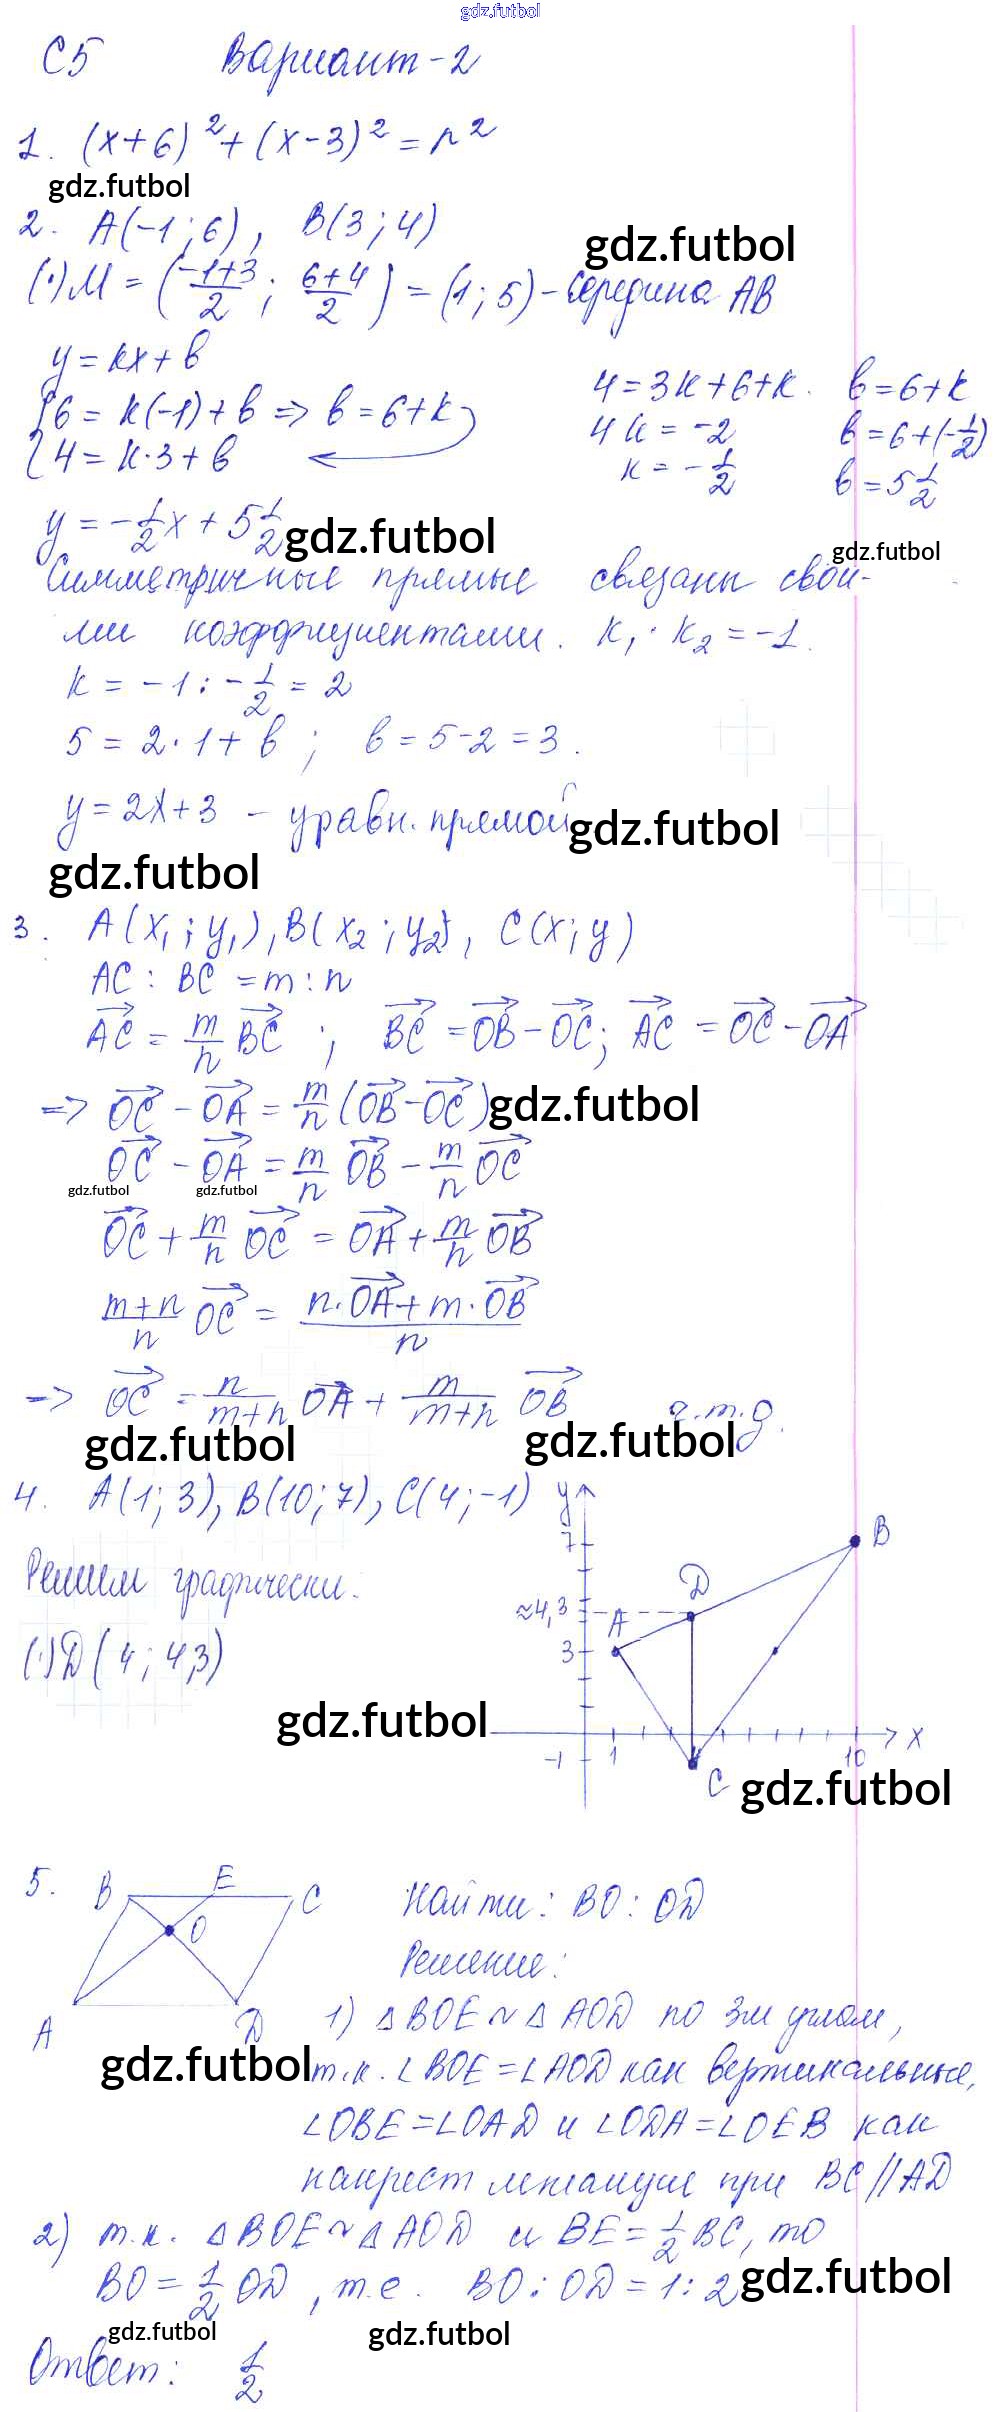 gdz.futbol
С5 Вариант-2
1. (x+6)² + (x-3)² = r²
gdz.futbol
2. A(-1;6), B(3;4)
gdz.futbol
(·)M = (-1+3/2; 6+4/2) = (1;5) - середина AB
y = kx + b
{6 = k(-1) + b => b = 6+k
{4 = k·3 + b
4 = 3k+6+k. b = 6+k
4k = -2 b = 6+(-1/2)
k = -1/2 b = 5 1/2
y = -1/2x + 5 1/2
gdz.futbol
gdz.futbol
Симметричные прямые связаны свои-
ми коэффициентами. k₁·k₂ = -1.
k = -1 : -1/2 = 2
5 = 2·1 + b ; b = 5-2 = 3.
y = 2x+3 - уравн. прямой
gdz.futbol
gdz.futbol
3. A(x₁;y₁), B(x₂;y₂), C(x;y)
AC : BC = m : n
AC→ = m/n BC→ ; BC→ = OB→ - OC→; AC→ = OC→ - OA→
=> OC→ - OA→ = m/n (OB→ - OC→)
gdz.futbol
OC→ - OA→ = m/n OB→ - m/n OC→
gdz.futbol gdz.futbol
OC→ + m/n OC→ = OA→ + m/n OB→
m+n/n OC→ = n·OA→ + m·OB→/n
=> OC→ = n/m+n OA→ + m/m+n OB→ ч.т.д.
gdz.futbol gdz.futbol
4. A(1;3), B(10;7), C(4;-1)
Решим графически.
(·)D(4; 4,3)
gdz.futbol
y
7
B
D
≈4,3
A
3
x
-1
1
10
C
gdz.futbol
5. B E C
O
A D
gdz.futbol
Найти: BO : OD
Решение:
1) △BOE ~ △AOD по 3м углам,
т.к. ∠BOE = ∠AOD как вертикальные,
∠OBE = ∠OAD и ∠ODA = ∠OEB как
накрест лежащие при BC // AD
2) т.к. △BOE ~ △AOD и BE = 1/2 BC, то
BO = 1/2 OD, т.е. BO : OD = 1:2
gdz.futbol
gdz.futbol gdz.futbol
Ответ: 1/2